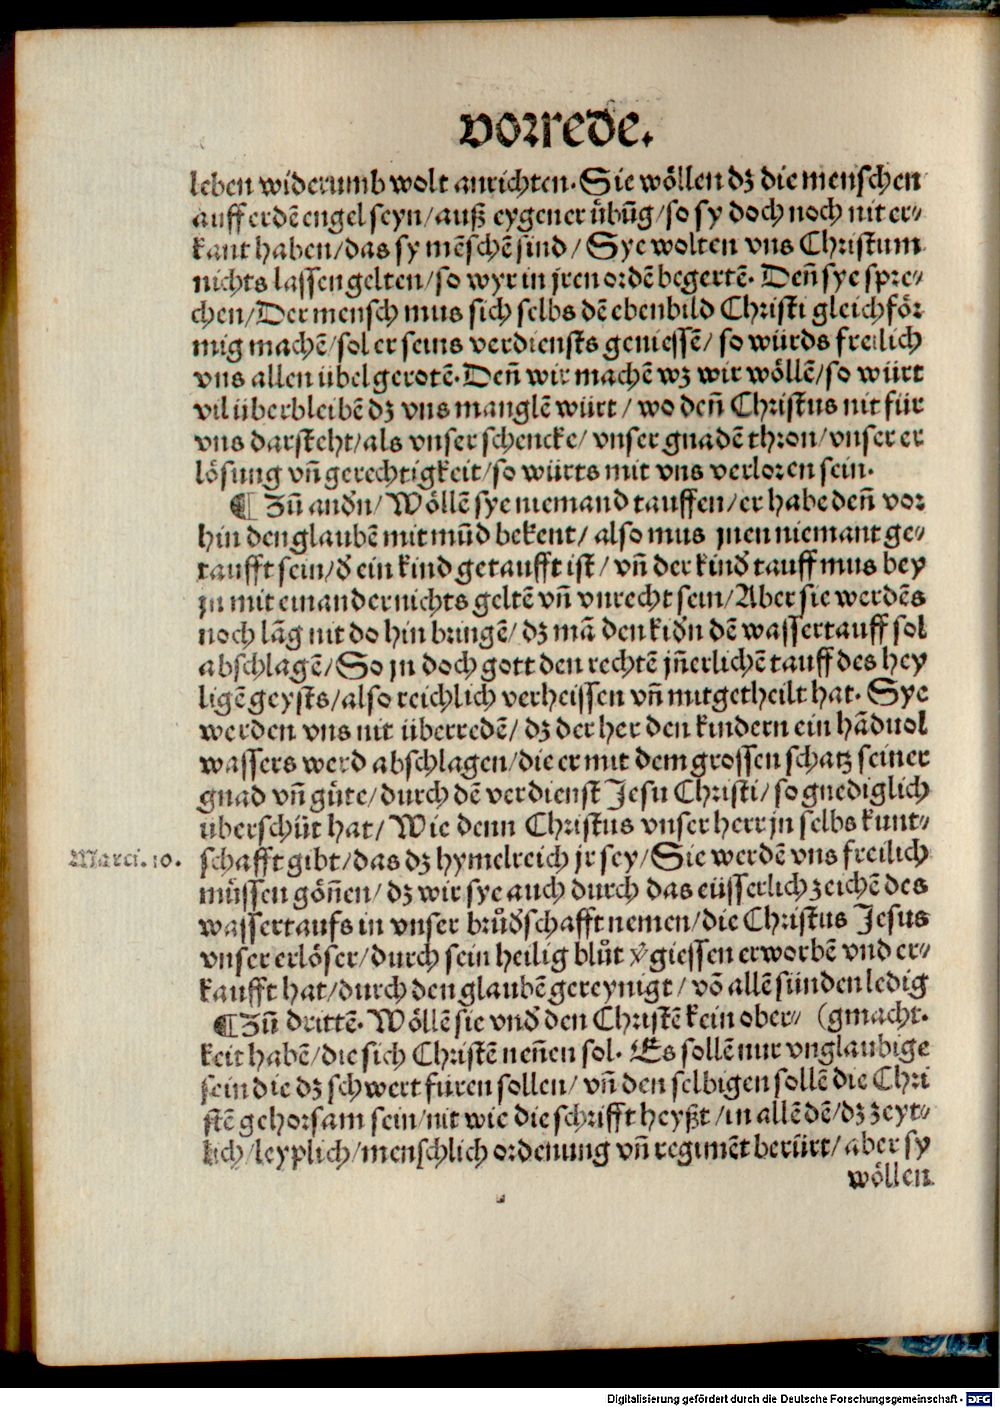 vorrede.
leben widerumb wolt anrichten. Sie wöllen dz die menschen
auff erdē engel seyn/ auß eygener übūg/ so sy doch noch nit er⸗
kant haben/ das sy mēschē sind/ Sye wolten vns Christum
nichts lassen gelten/ so wyr in jren ordē begertē. Deñ sye spre⸗
chen/ Der mensch mus sich selbs dē ebenbild Christi gleichför
mig machē/ sol er seins verdiensts geniessē/ so würds freilich
vns allen übel gerotē. Deñ wir machē wz wir wöllē/ so würt
vil überbleibē dz vns manglē würt/ wo deñ Christus nit für
vns darsteht/ als vnser schencke/ vnser gnadē thron/ vnser er
lösung vñ gerechtigkeit/ so würts mit vns verloren sein.
¶ Zū andn̄/ Wöllē sye niemand tauffen/ er habe deñ vor
hin den glaubē mit mūd bekent/ also mus jnen niemant ge⸗
taufft sein/ đ ein kind getaufft ist/ vñ der kinđ tauff mus bey
jn mit einander nichts geltē vñ vnrecht sein/ Aber sie werdēs
noch lāg nit do hin bringē/ dz mā den kiđn dē wassertauff sol
abschlagē/ So jn doch gott den rechtē jñerlichē tauff des hey
ligē geysts/ also reichlich verheissen vñ mitgetheilt hat. Sye
werden vns nit überredē/ dz der her den kindern ein hāduol
wassers werd abschlagen/ die er mit dem grossen schatz seiner
gnad vñ güte/ durch dē verdienst Jesu Christi/ so gnediglich
überschüt hat/ Wie denn Christus vnser herr jn selbs kunt⸗
Marci. 10. schafft gibt/ das dz hymelreich jr sey/ Sie werdē vns freilich
müssen göñen/ dz wir sye auch durch das eüsserlich zeichē des
wassertaufs in vnser brůđschafft nemen/ die Christus Jesus
vnser erlöser/ durch sein heilig blůt v̓giessen erworbē vnd er⸗
kaufft hat/ durch den glaubē gereynigt/ vō allē sünden ledig
¶ Zū drittē. Wöllē sie vnđ den Christē kein ober⸗ (gmacht.
keit habē/ die sich Christē neñen sol. Es sollē nur vnglaubige
sein die dz schwert füren sollen/ vñ den selbigen sollē die Chri
stē gehorsam sein/ nit wie die schrifft heyßt/ in allē dē/ dz zeyt⸗
lich/ leyplich/ menschlich ordenung vñ regimēt berürt/ aber sy
wöllen
Digitalisierung gefördert durch die Deutsche Forschungsgemeinschaft - DFG